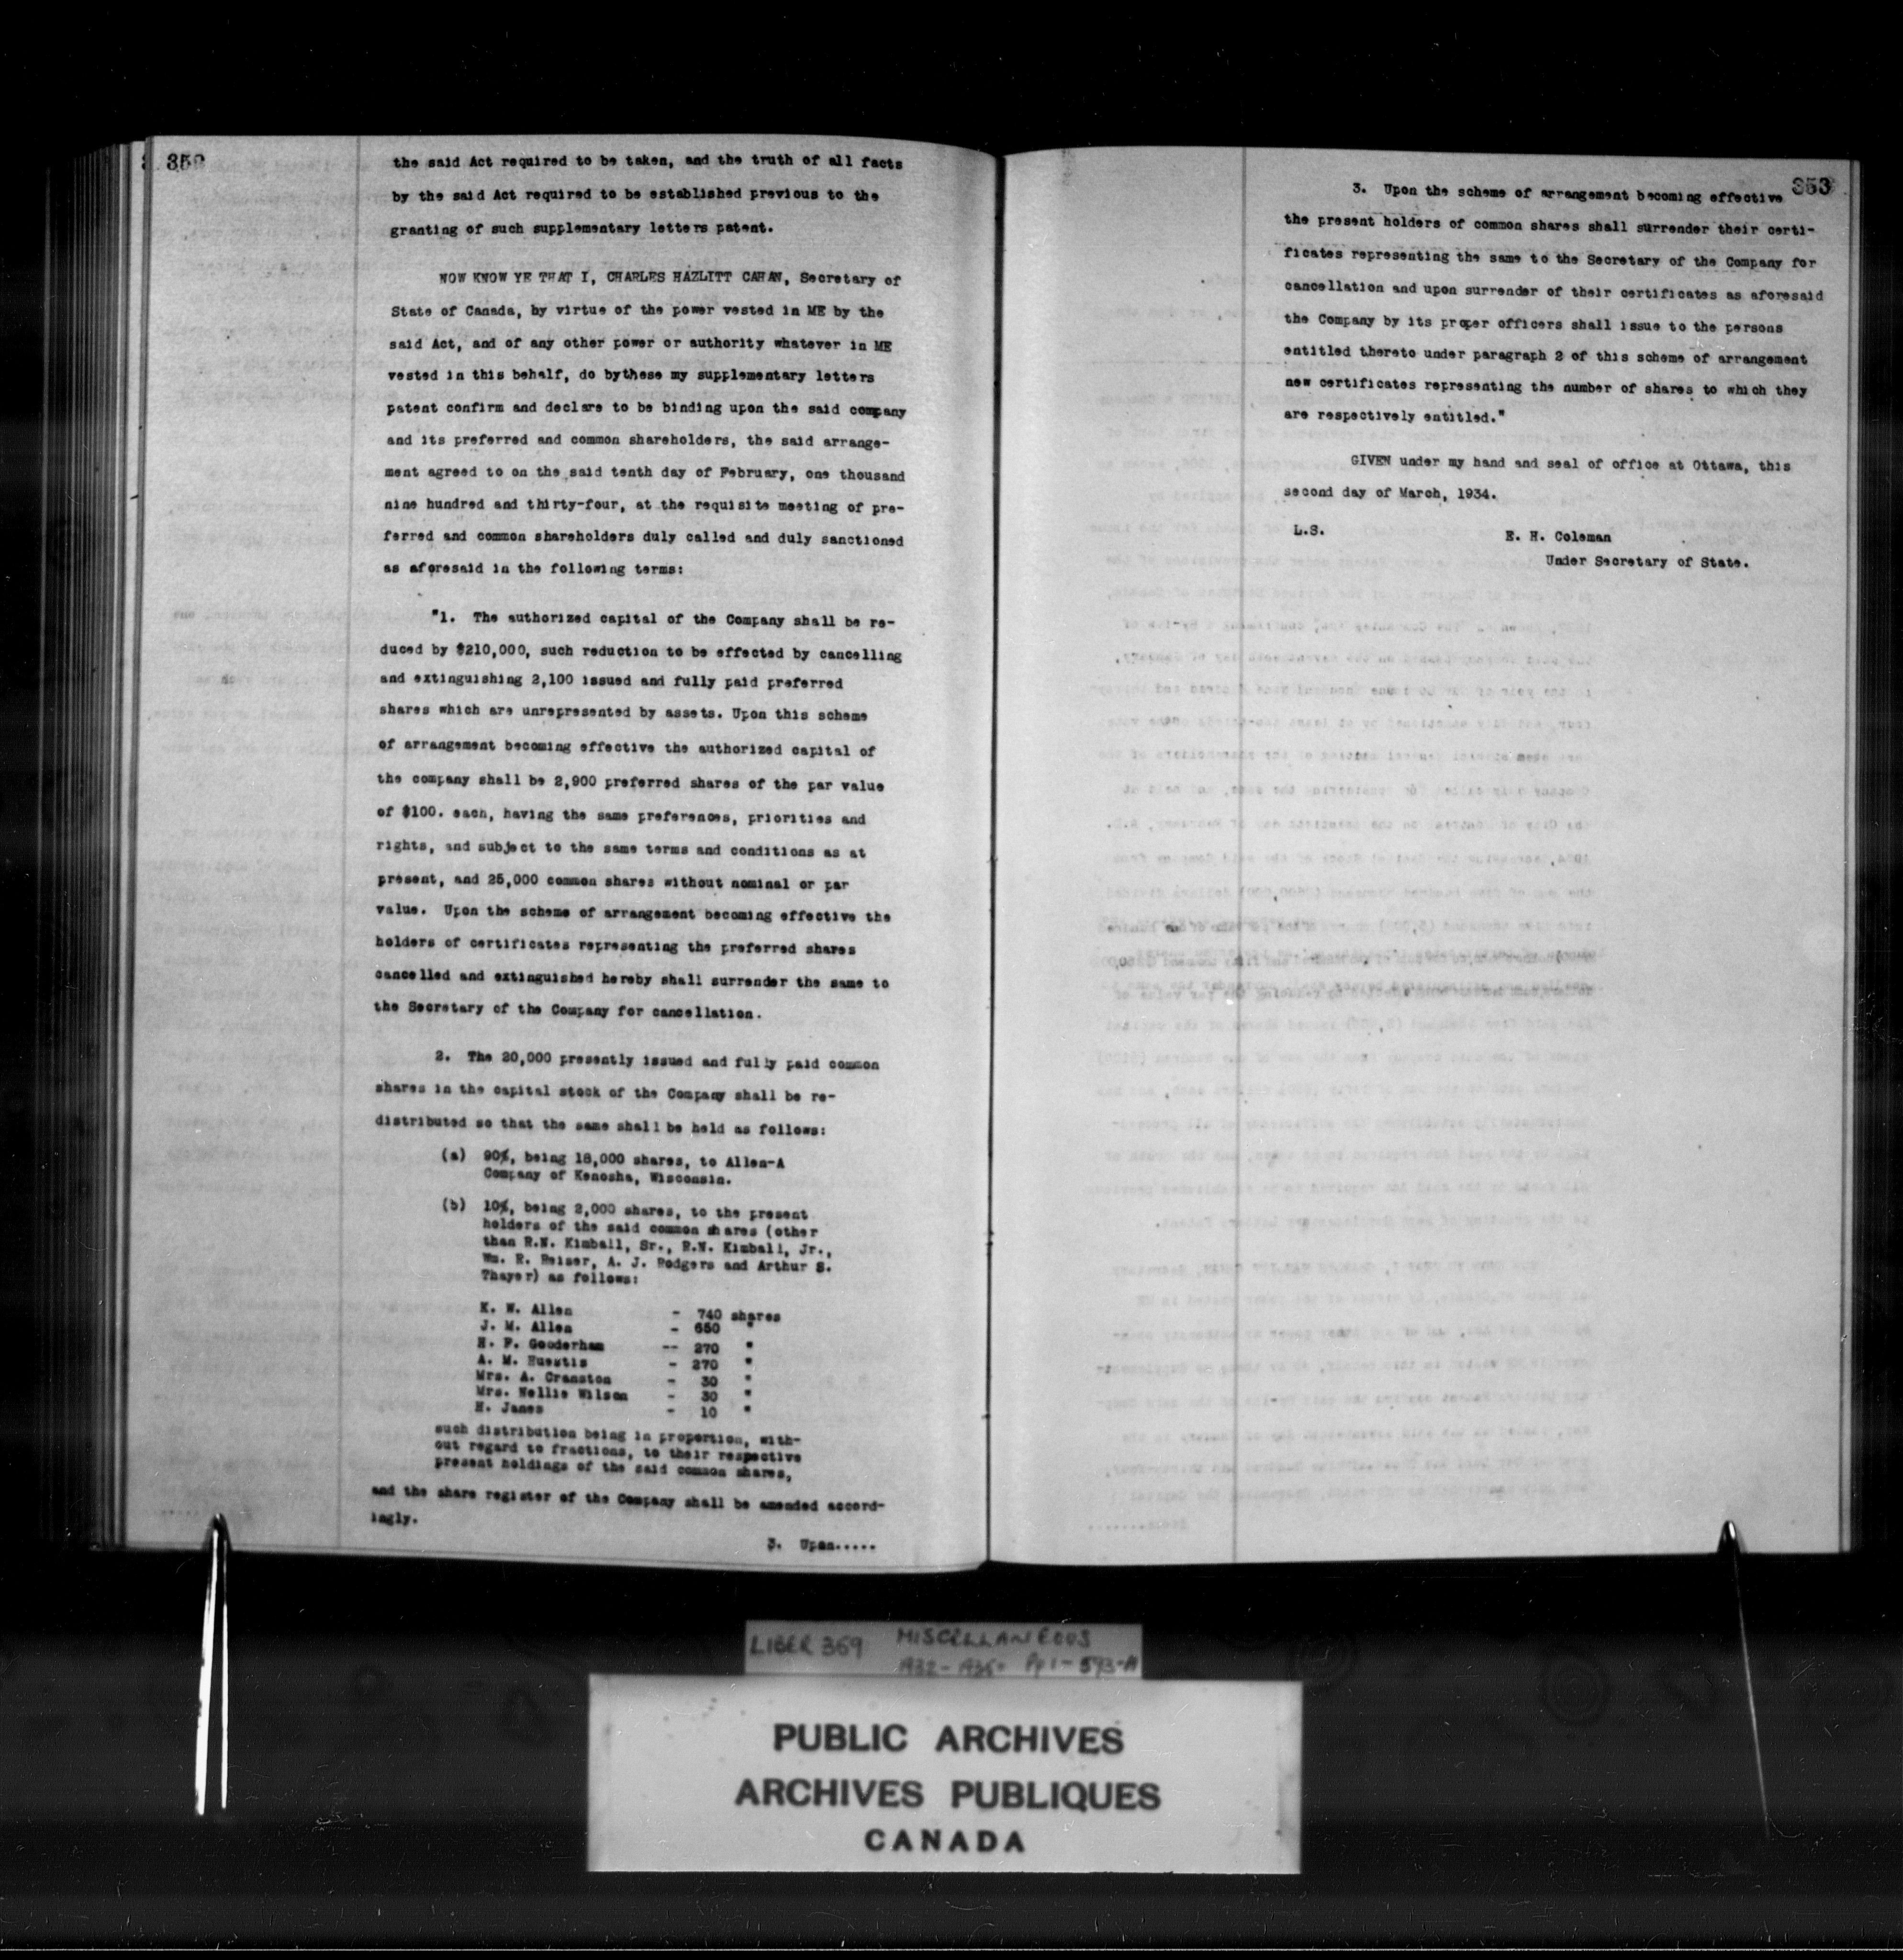 352
the said Act required to be taken, and the truth of all facts
by the said Act required to be established previous to the
granting of such supplementary letters patent.
NOW KNOW YE THAT I, CHARLES HAZLITT CAHAN, Secretary of
State of Canada, by virtue of the power vested in ME by the
said Act, and of any other power or authority whatever in ME
vested in this behalf, do bythese my supplementary letters
patent confirm and declare to be binding upon the said company
and its preferred and common shareholders, the said arrange-
ment agreed to on the said tenth day of February, one thousand
nine hundred and thirty-four, at the requisite meeting of pre-
ferred and common shareholders duly called and duly sanctioned
as aforesaid in the following terms:
"1. The authorized capital of the Company shall be re-
duced by $210,000, such reduction to be effected by cancelling
and extinguishing 2,100 issued and fully paid preferred
shares which are unrepresented by assets. Upon this scheme
of arrangement becoming effective the authorized capital of
the company shall be 2,900 preferred shares of the par value
of $100. each, having the same preferences, priorities and
rights, and subject to the same terms and conditions as at
present, and 25,000 common shares without nominal or par
value. Upon the scheme of arrangement becoming effective the
holders of certificates representing the preferred shares
cancelled and extinguished hereby shall surrender the same to
the Secretary of the Company for cancellation.
2. The 20,000 presently issued and fully paid common
shares in the capital stock of the Company shall be re-
distributed so that the same shall be held as follows:
(a) 90%, being 18,000 shares, to Allen-A
Company of Kenosha, Wisconsin.
(b) 10%, being 2,000 shares, to the present
holders of the said common shares (other
than R.N. Kimball, Sr., R.N. Kimball, Jr.,
Wm. R. Reiser, A. J. Rodgers and Arthur S.
Thayer) as follows:
K. W. Allen - 740 shares
J. M. Allen - 650 "
H. F. Gooderham -- 270 "
A. M. Huestis - 270 "
Mrs. A. Cranston - 30 "
Mrs. Nellie Wilson - 30 "
H. Janes - 10 "
such distribution being in proportion, with-
out regard to fractions, to their respective
present holdings of the said common shares,
and the share register of the Company shall be amended accord-
ingly.
3. Upon.....
353
3. Upon the scheme of arrangement becoming effective
the present holders of common shares shall surrender their certi-
ficates representing the same to the Secretary of the Company for
cancellation and upon surrender of their certificates as aforesaid
the Company by its proper officers shall issue to the persons
entitled thereto under paragraph 2 of this scheme of arrangement
new certificates representing the number of shares to which they
are respectively entitled."
GIVEN under my hand and seal of office at Ottawa, this
second day of March, 1934.
L.S. E. H. Coleman
Under Secretary of State.
LIBER 369 MISCELLANEOUS
1932-1935 Pp 1-593-A
PUBLIC ARCHIVES
ARCHIVES PUBLIQUES
CANADA